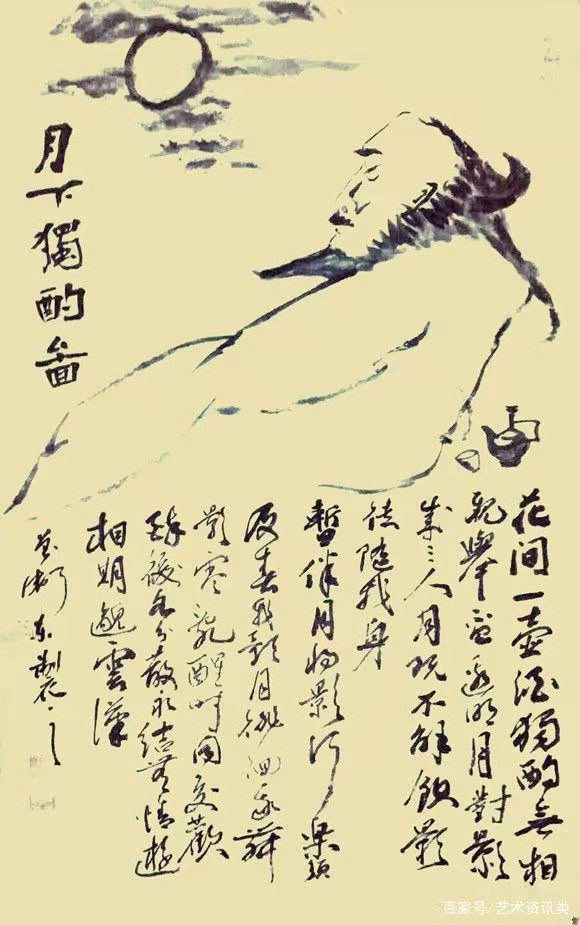 月下獨酌圖
花间一壺酒獨酌無相
親舉盃邀明月對影
成三人月既不解飲影
徒隨我身
暫伴月將影行樂須
及春我歌月徘徊我舞
影零亂醒時同交歡
醉後各分散永結無情遊
相期邈雲漢
百家号/艺术资讯类